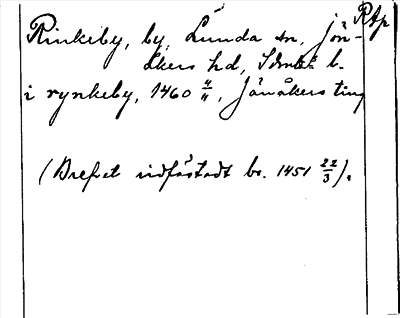 Rtp
Rinkeby, by, Lunda sn, Jön-
åkers hd, Sdml. l.
i rynkeby, 1460 4/11, Jönåkers ting
(Brefvet vidfästadt br. 1451 22/3).